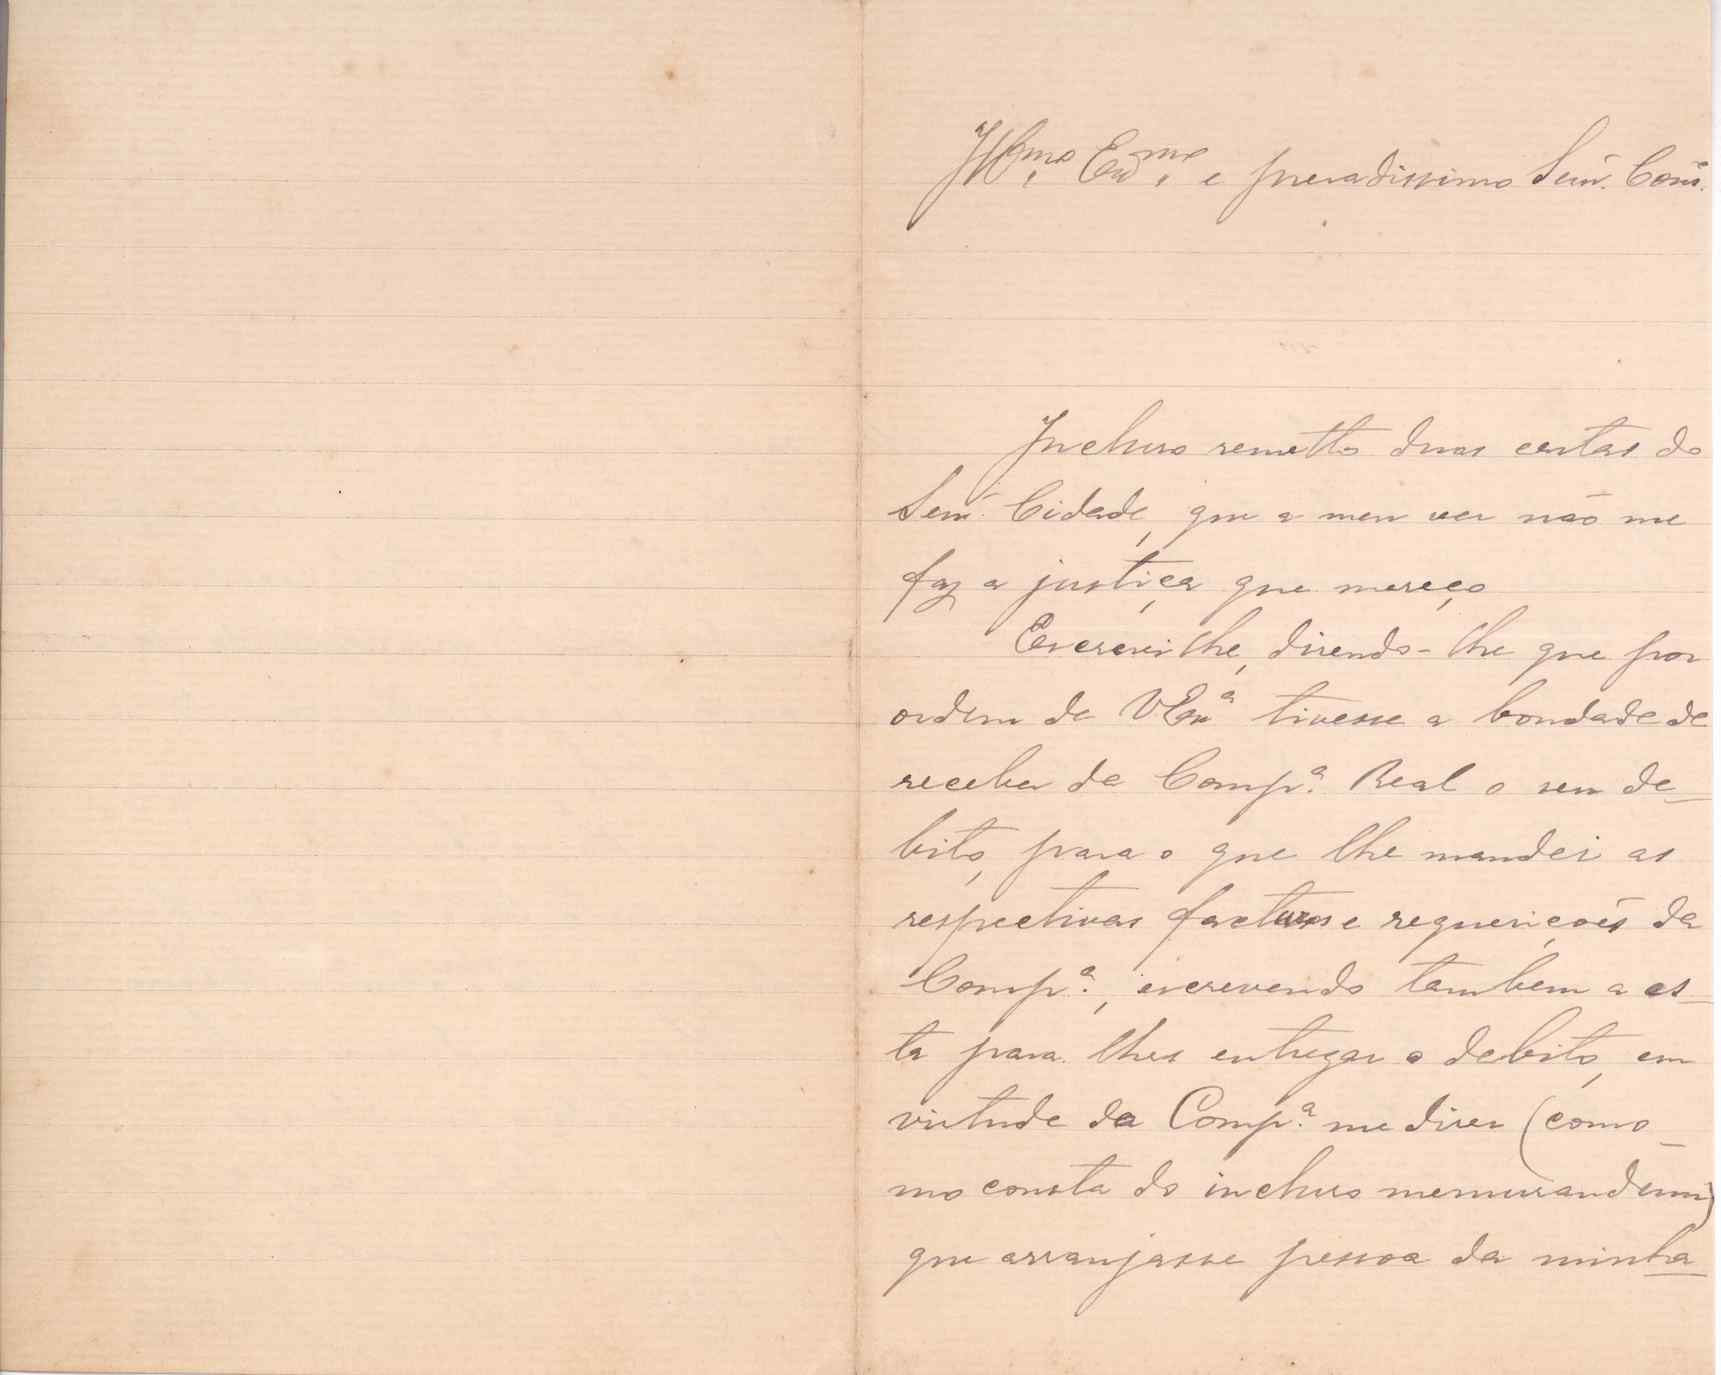 Illmo. Exmo. e presadissimo Senr. Cons.
Incluso remetto duas cartas do
Senr. Cidade, que a meu ver não me
faz a justiça que mereço
Escrevi lhe, disendo-lhe que por
ordem de VExa tivesse a bondade de
receber da Compª. Real o seu de-
bito, para o que lhe mandei as
respectivas facturas e requeriçoẽs da
Compª., escrevendo tambem a es-
ta para lhes entregar o debito, em
virtude da Compª. me diser (como
mo consta do incluso memurandum)
que arranjasse pessoa da minha